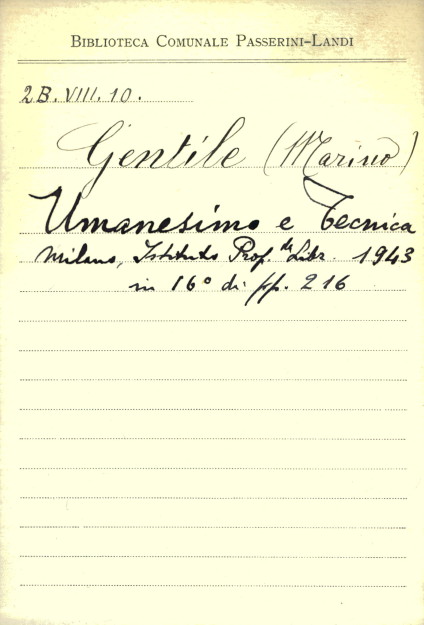 BIBLIOTECA COMUNALE PASSERINI-LANDI
2B. VIII. 10.
Gentile (Marino)
Umanesimo e Tecnica
Milano, Istituto Prof.le Libr. 1943
in 16° di pp. 216